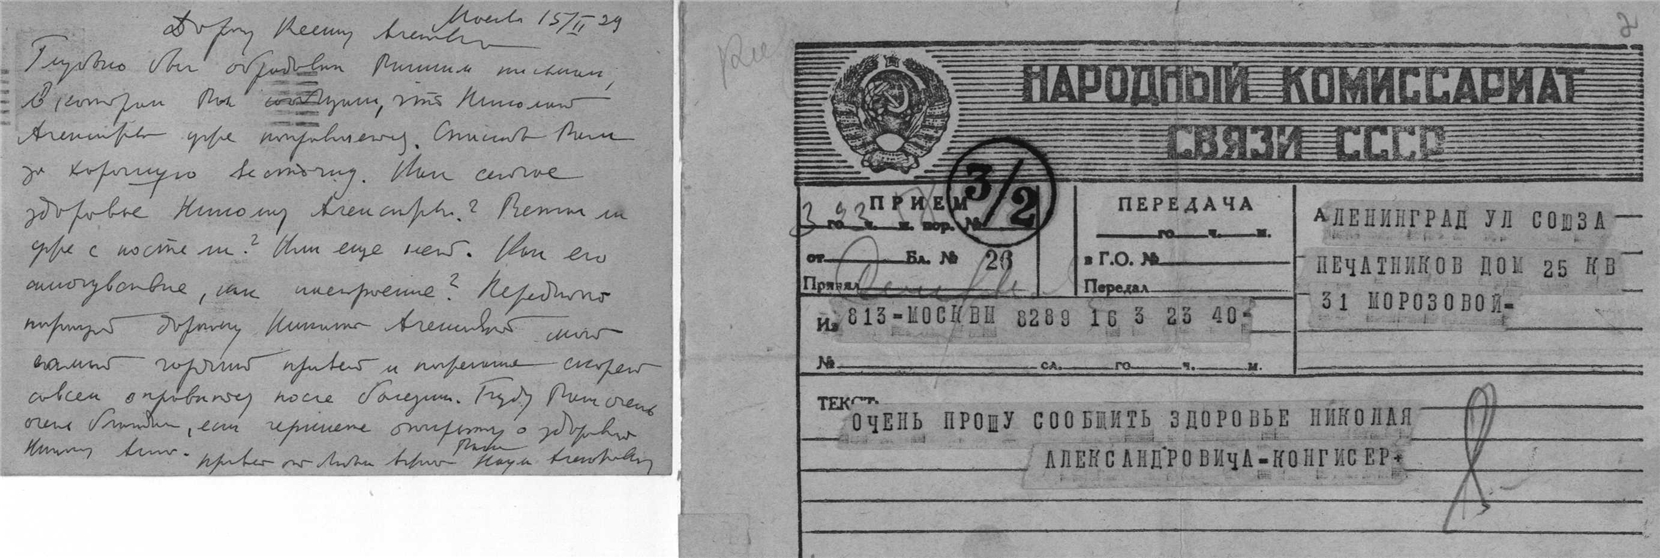 Москва 15/II 29
Дорогая Ксения Алексеевна
Глубоко был обрадован Вашим письмом,
в котором Вы сообщили, что Николай
Александрович уже поправляется. Спасибо Вам
за хорошую весточку. Как сейчас
здоровье Николая Александровича? Встал ли
уже с постели? Или еще нет. Как его
самочувствие, как настроение? Передайте
дорогому Николаю Александровичу мой
самый горячий привет и пожелание скорей
совсем оправиться после болезни. Буду Вам очень
очень благодарен, если черкнете открытку о здоровье
Николая Алекс. Привет от
НАРОДНЫЙ КОМИССАРИАТ
СВЯЗИ СССР
3/2
ПРИЕМ
го ч. м. пор. №
от Бл. № 26
Принял
ПЕРЕДАЧА
го ч. м.
в Г.О. №
Передал
А ЛЕНИНГРАД УЛ СОЮЗА
ПЕЧАТНИКОВ ДОМ 25 КВ
31 МОРОЗОВОЙ=
Из 813=МОСКВЫ 8289 16 3 23 40=
№ сл. го ч. м.
ТЕКСТ:
ОЧЕНЬ ПРОШУ СООБЩИТЬ ЗДОРОВЬЕ НИКОЛАЯ
АЛЕКСАНДРОВИЧА=КОНГИСЕР+